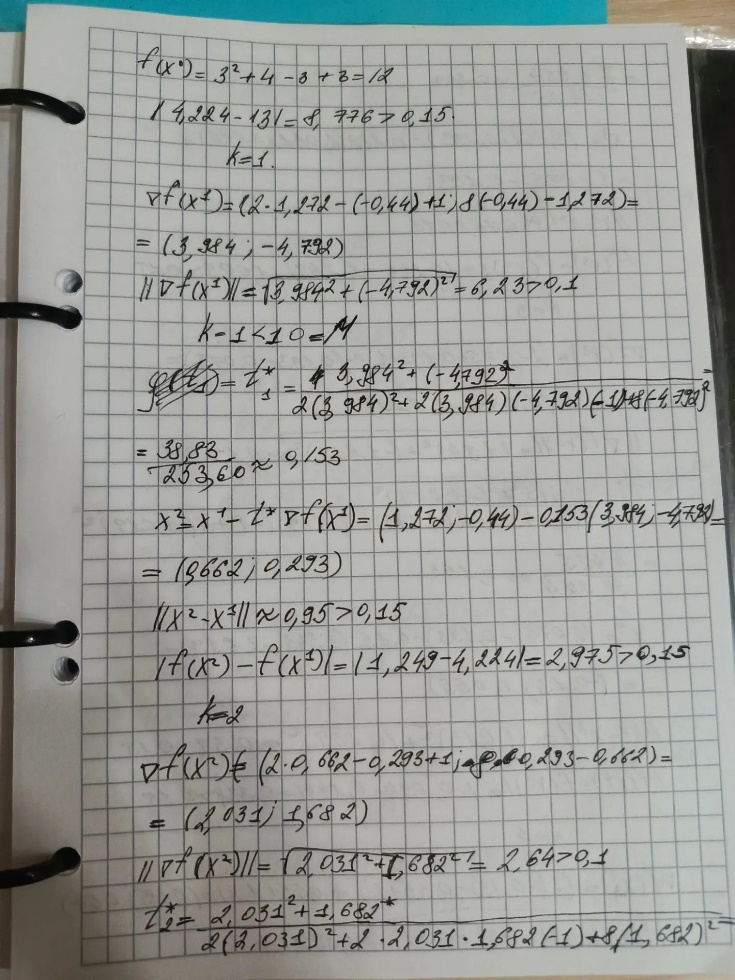 f(x⁰) = 3² + 4 - 3 + 3 = 12
|4,224 - 13| = 8,776 > 0,15.
k=1.
∇f(x¹) = (2·1,272 - (-0,44) + 1; 8(-0,44) - 1,272) =
= (3,984; -4,792)
||∇f(x¹)|| = √3,984² + (-4,792)² = 6,23 > 0,1
k = 1 < 10 = M
= t₁* = 3,984² + (-4,792)² / 2(3,984)² + 2(3,984)(-4,792)(-1) + 8(-4,792)² =
= 38,83 / 253,60 ≈ 0,153
x² = x¹ - t* ∇f(x¹) = (1,272; -0,44) - 0,153(3,984; -4,792) =
= (0,662; 0,293)
||x² - x¹|| ≈ 0,95 > 0,15
|f(x²) - f(x¹)| = |1,249 - 4,224| = 2,975 > 0,15
k=2
∇f(x²) = (2·0,662 - 0,293 + 1; 0,293 - 0,662) =
= (2,031; 1,682)
||∇f(x²)|| = √2,031² + 1,682² = 2,64 > 0,1
t₂* = 2,031² + 1,682² / 2(2,031)² + 2·2,031·1,682(-1) + 8(1,682)²